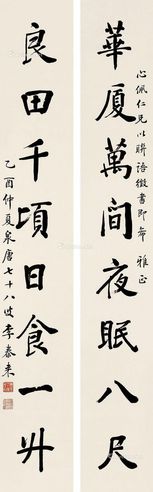 心佩仁兄以联語徵書即希 雅正
華厦萬间夜眠八尺
良田千頃日食一升
乙酉仲夏泉唐七十八叟李春来